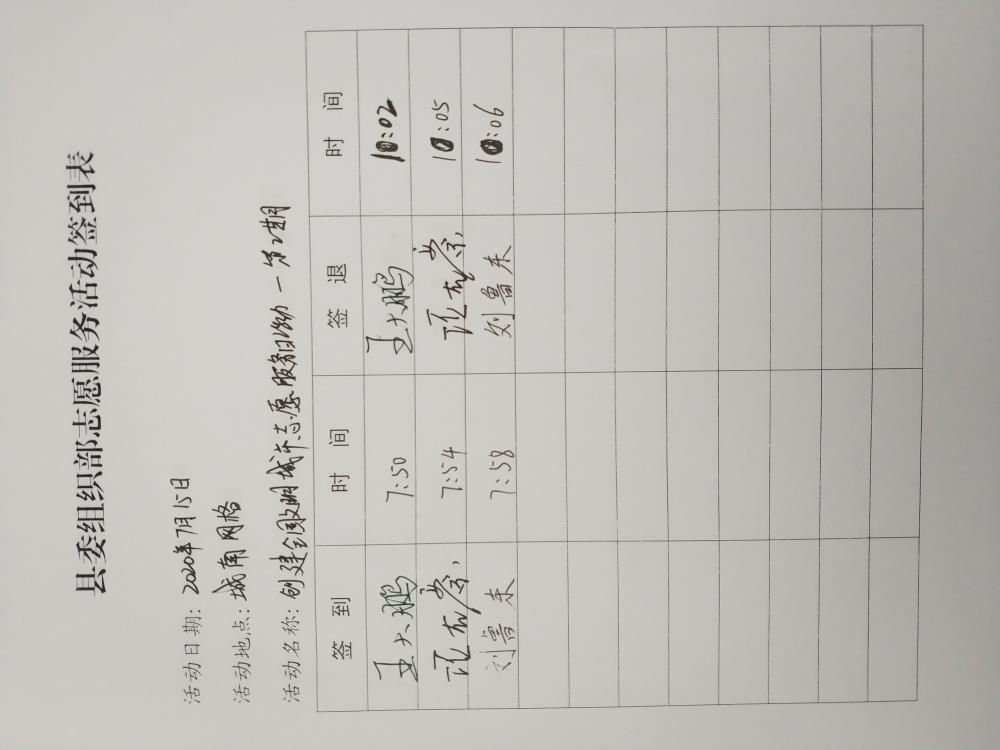 县委组织部志愿服务活动签到表
活动日期: 2020年7月15日
活动地点: 城南网格
活动名称: 创建全国文明城市志愿服务日活动一第2期
签到 时间 签退 时间
王大鹏 7:50 王大鹏 10:02
7:54 10:05
刘鲁东 7:58 刘鲁东 10:06